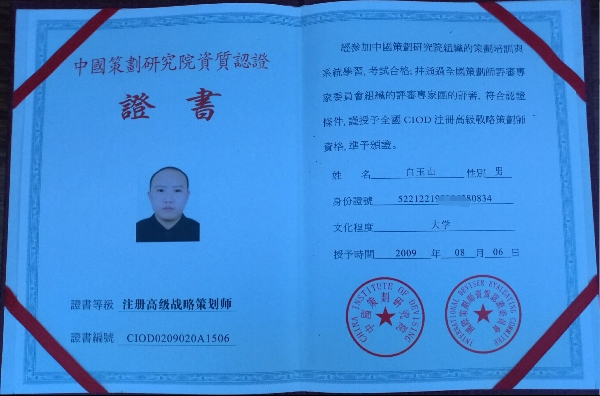 中國策劃研究院資質認證
證書
證書等級 注册高级战略策划师
證書編號 CIOD0209020A1506
經參加中國策劃研究院組織的策劃培訓與
系統學習,考試合格,并通過全國策劃師評審專
家委員會組織的評審專家團的評審,符合認證
條件,謹授予全國 CIOD 注冊高級戰略策劃師
資格,準予頒證。
姓名 白玉山 性別 男
身份證號
文化程度 大学
授予時間 2009 年 08 月 06 日
CHINA INSTITUTE OF DEVISING
中國策劃研究院
INTERNATIONAL DEVISER EVALUATING COMMITTEE